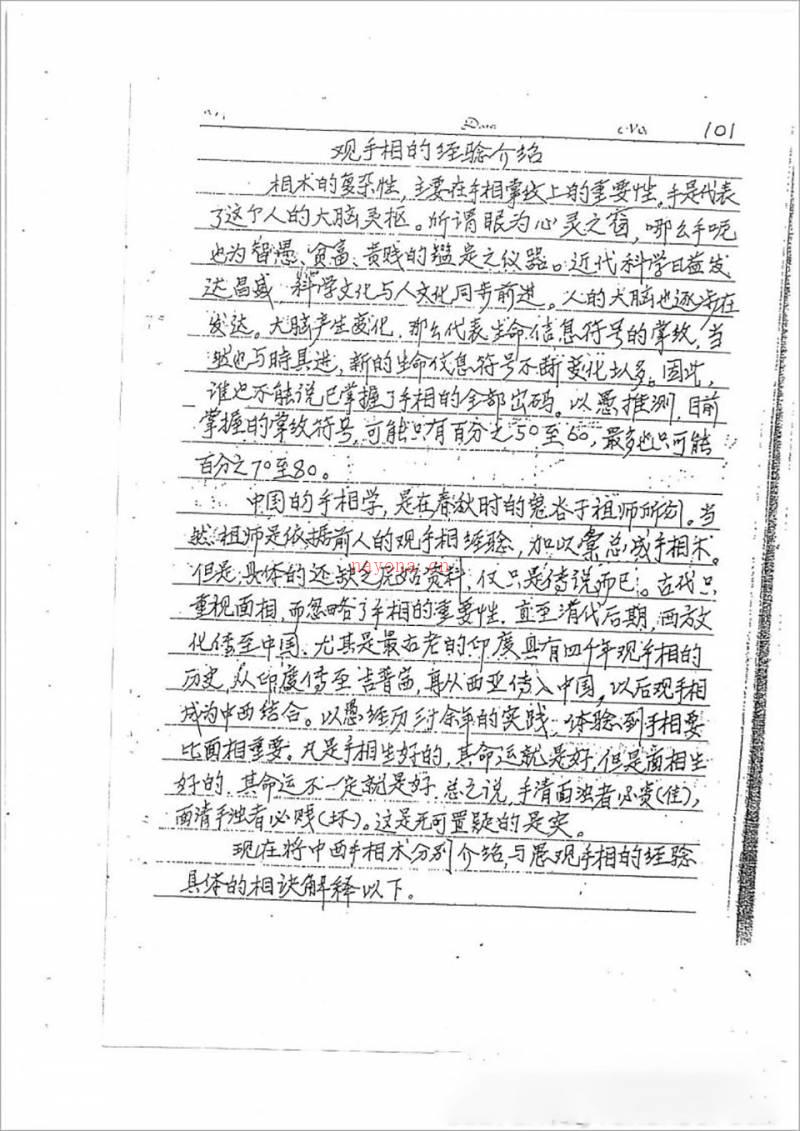 Date No. 101
观手相的经验介绍
相术的复杂性,主要在手相掌纹上的重要性。手是代表
了这个人的大脑灵枢。所谓眼为心灵之窗,哪么手呢
也为智愚、贫富、贵贱的鑑定之仪器。近代科学日益发
达昌盛 科学文化与人文化同步前进。人的大脑也逐步在
发达。大脑产生变化,那么代表生命信息符号的掌纹,当
然也与時具进,新的生命信息符号不断变化增多。因此,
谁也不能说已掌握了手相的全部密码。以愚推测,目前
掌握的掌纹符号,可能只有百分之50至60,最多也只可能
百分之70至80。
中国的手相学,是在春秋时的鬼谷子祖师所创。当
然祖师是依据前人的观手相经验,加以彙总成手相术。
但是具体的还缺乏历史资料,仅只是传说而已。古代只
nayona.cn
重视面相,而忽略了手相的重要性。直至清代后期,西方文
化传至中国、尤其是最古老的印度具有四千年观手相的
历史,从印度传至吉普茜,再从西亚传入中国,以后观手相
成为中西结合。以愚经历 余年的实践,体验到手相要
比面相重要。凡是手相生好的,其命运就是好,但是面相生
好的,其命运不一定就是好。总之说,手清面浊者必贵(佳),
面清手浊者必贱(坏)。这是无可置疑的是实。
现在将中西手相术分别介绍,与愚观手相的经验
具体的相诀解释以下。